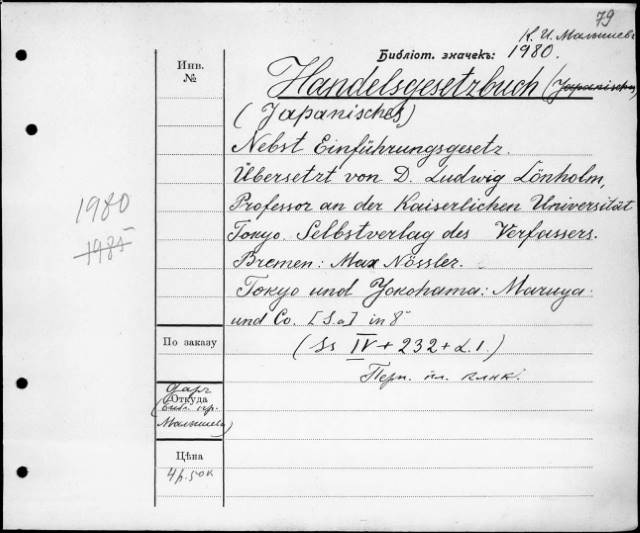 79
К. И. Малышев
Библіот. значекъ: 1980.
Инв.
№
Handelsgesetzbuch (Japanisches)
(Japanisches)
Nebst Einführungsgesetz.
Übersetzt von D. Ludwig Lönholm,
Professor an der Kaiserlichen Universität
Tokyo. Selbstverlag des Verfassers.
Bremen: Max Nössler.
Tokyo und Yokohama: Maruya
und Co. [S.a] in 8°
(Ss IV + 232 + d. 1.)
Пер. пл. клнк.
1980
1985
По заказу
Даръ
Откуда
(Библ. пр.
Малышева)
Цѣна
4 р. 50 к